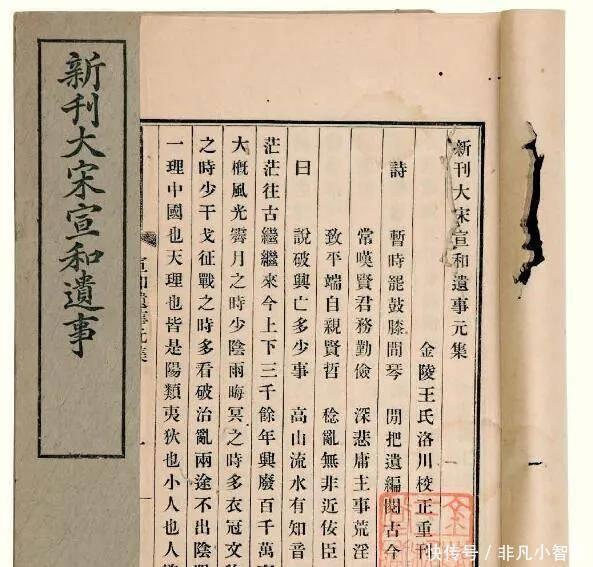 新刊大宋宣和遺事
新刊大宋宣和遺事元集
金陵王氏洛川校正重刊
詩 暫時罷鼓膝間琴 閒把遺編閱古今
常嘆賢君務勤儉 深悲庸主事荒淫
致平端自親賢哲 稔亂無非近佞臣
曰 說破興亡多少事 高山流水有知音
茫茫往古繼繼來今上下三千餘年興廢百千萬事
大概風光霽月之時少陰雨晦冥之時多衣冠文物
之時少干戈征戰之時多看破治亂兩途不出陰陽
一理中國也天理也皆是陽類夷狄也小人也人
宣和遺事元集
快传号／非凡小智